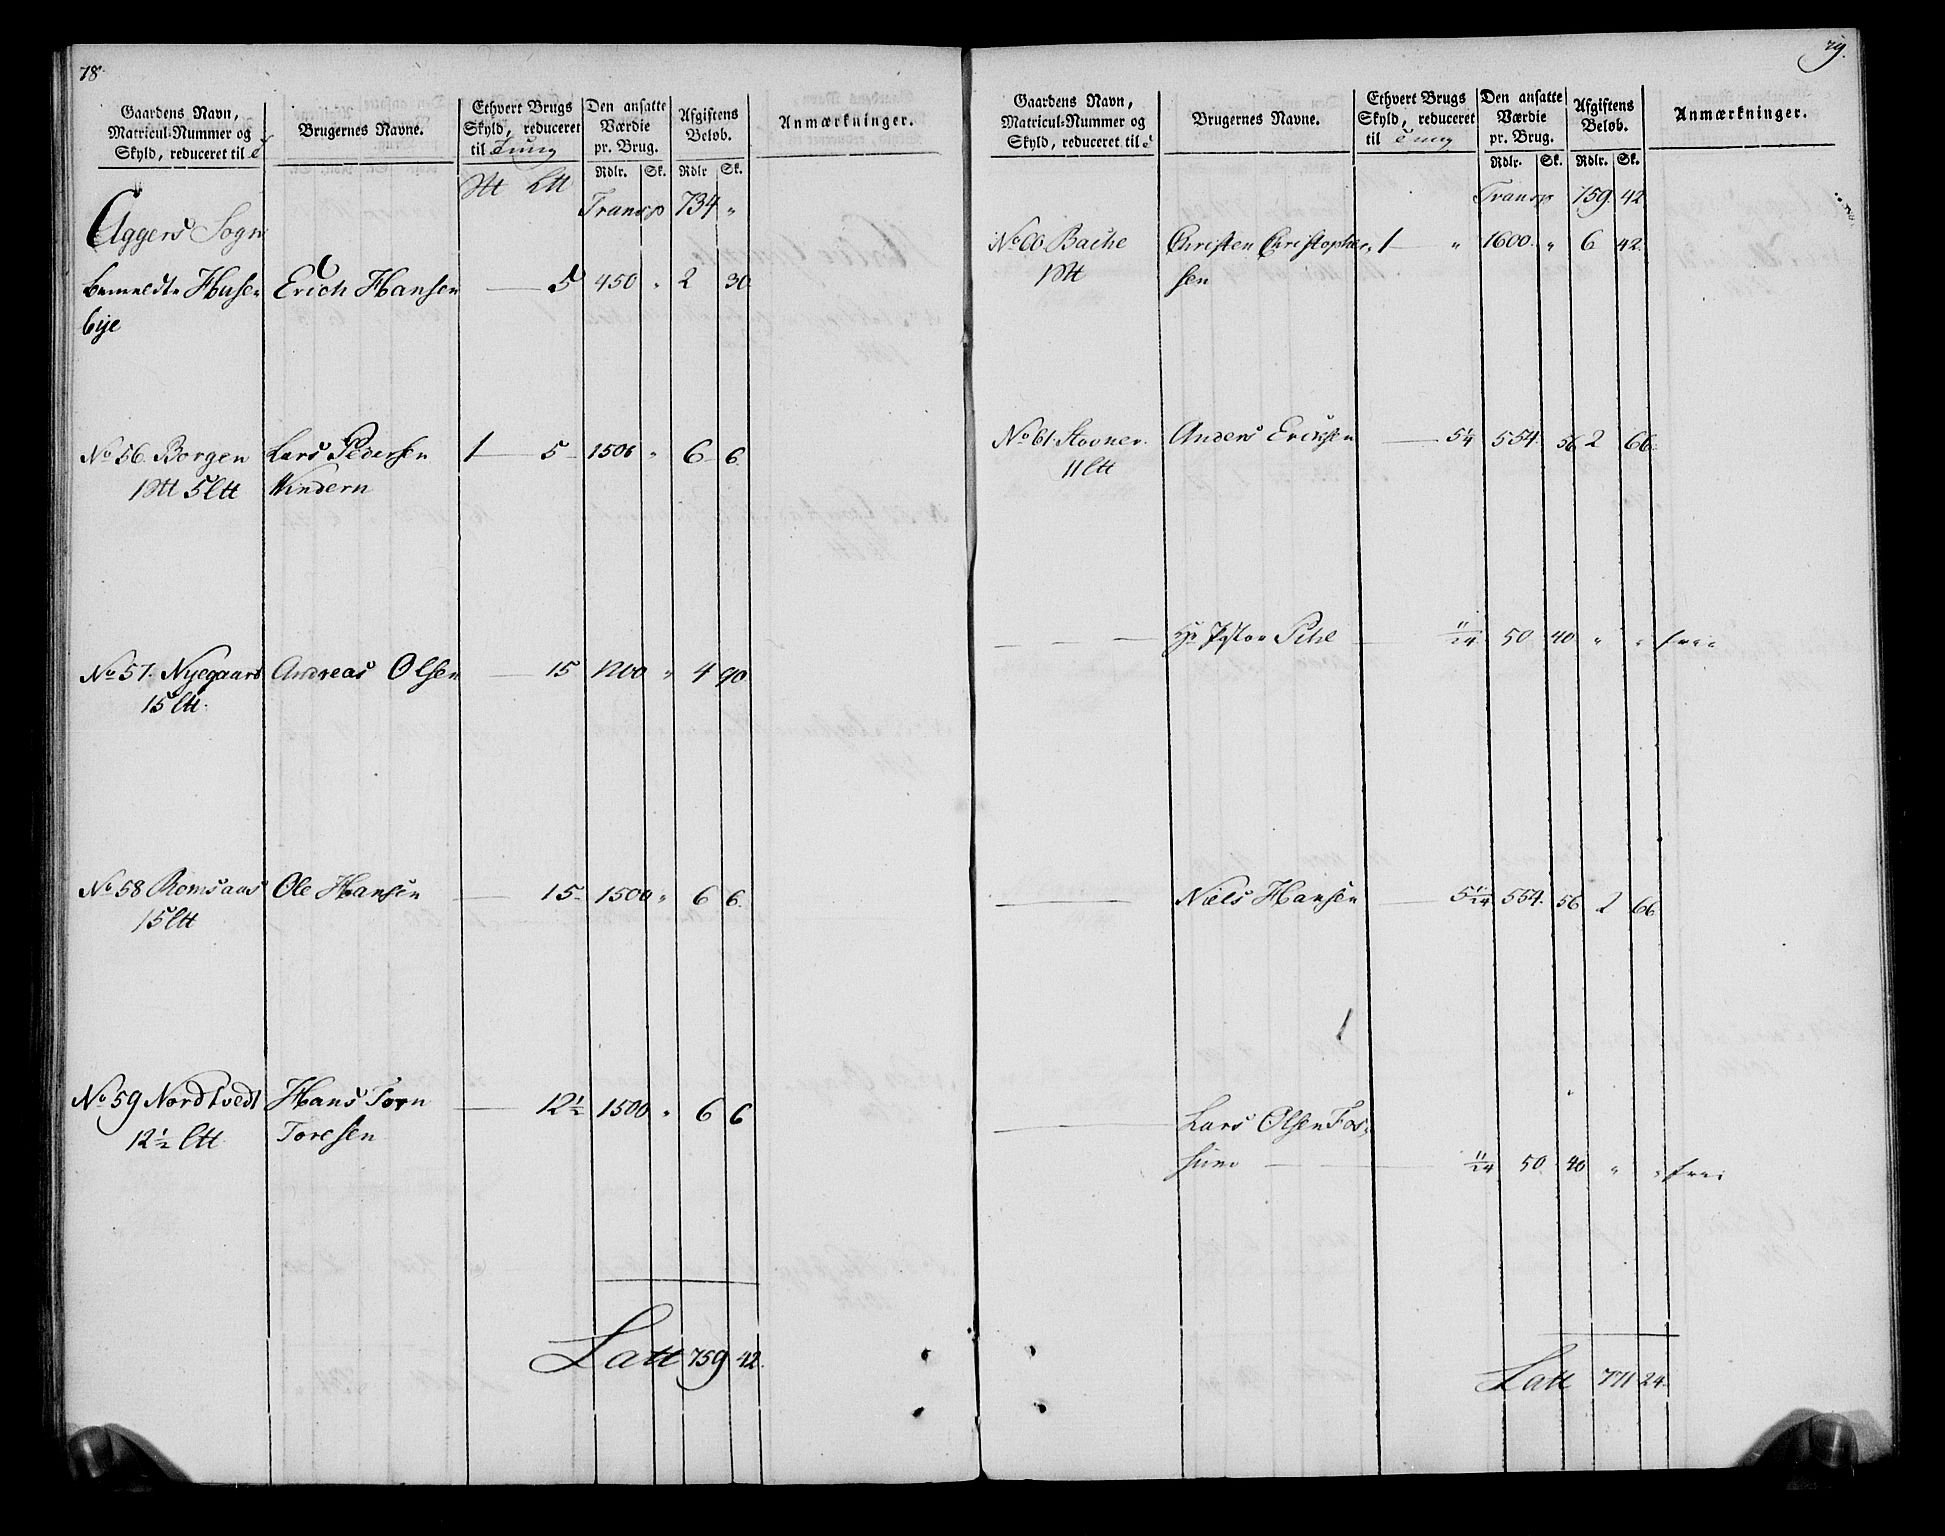 78.
Gaardens Navn, Matricul-Nummer og Skyld, reduceret til
Brugernes Navne.
Ethvert Brugs Skyld, reduceret til Tung
Den ansatte Værdie pr. Brug.
Afgiftens Beløb.
Anmærkninger.
Rdlr. Sk. Rdlr Sk.
Transp 734 "
Aggers Sogn
bemeldte Husebye Erich Hansen — 5 450 " 2 30
No 56. Borgen Lars Pedersen 1 — 5 1506 " 6 6
5 Windern
No 57. Nyegaard Andreas Olsen — 15 1200 " 4 90
15
No 58 Romsaas Ole Hansen — 15 1500 " 6 6
15
No 59 Nordtvedt Hans Torn — 12½ 1500 " 6 6
12½ Toresen
Latt 759 42.
79.
Gaardens Navn, Matricul-Nummer og Skyld, reduceret til
Brugernes Navne.
Ethvert Brugs Skyld, reduceret til Tung
Den ansatte Værdie pr. Brug.
Afgiftens Beløb.
Anmærkninger.
Rdlr. Sk. Rdlr. Sk.
Transp 759 42
No 60. Bache Christen Christopher- 1 — " 1600 " 6 42
sen
No 61. Stovner Anders Erichsen — 554. 56 2 66
11
Pihl — 11/24 50 40 " " frie
Niels Hansen — 554. 56 2 66
Lars Olsen Fos-
sum — 11/24 50 40 " " frie
Latt 771 24